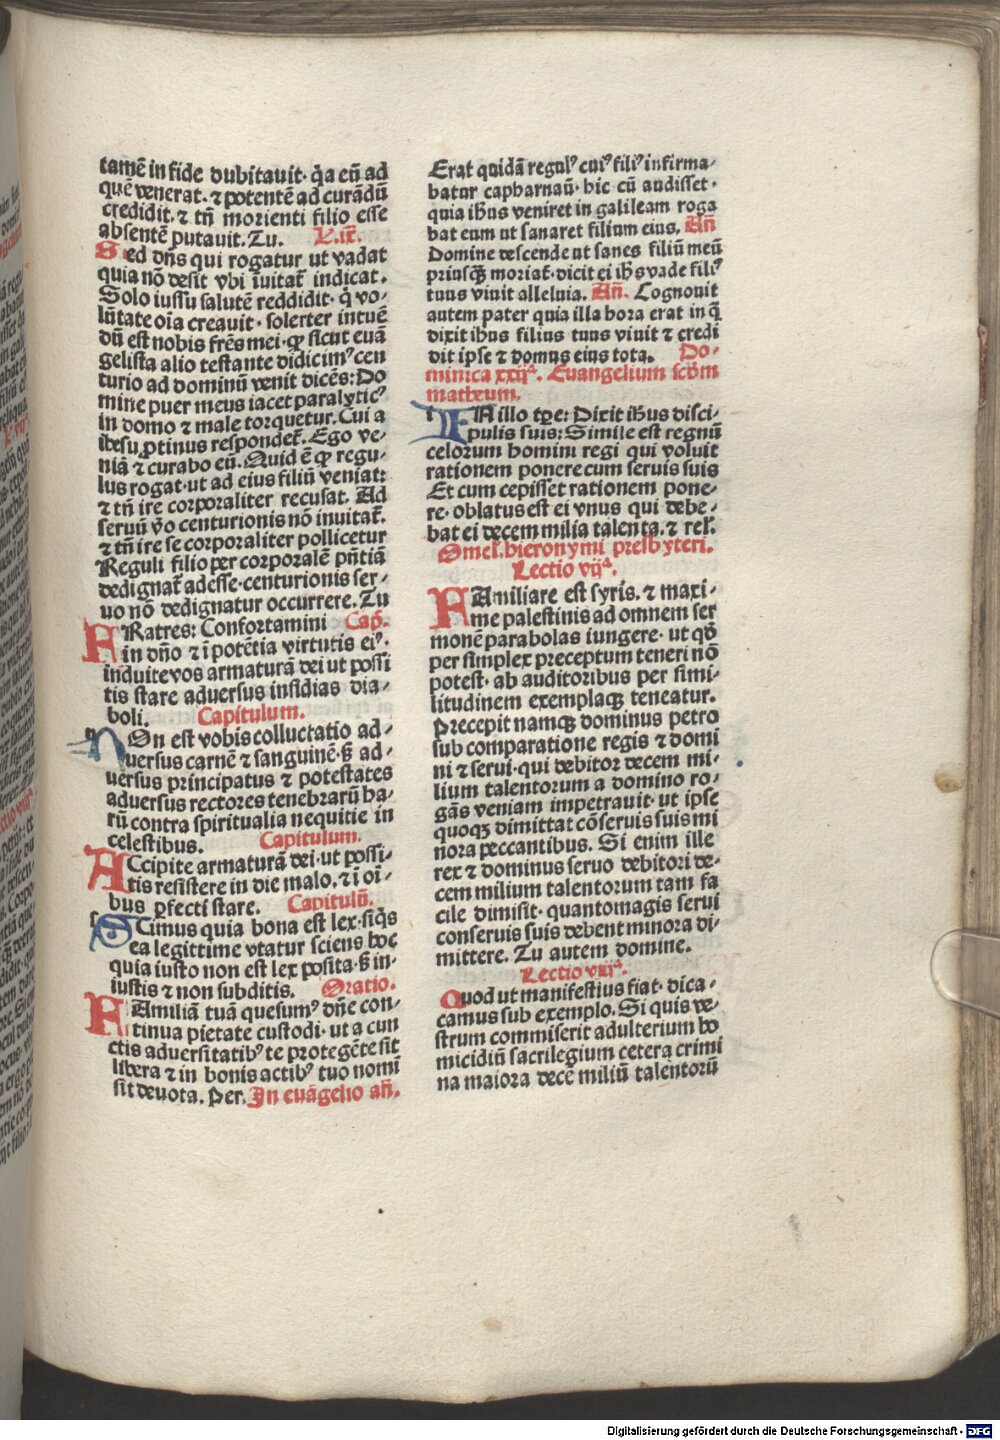 tamē in fide dubitauit· q̇a eū ad
quē venerat· ⁊ potentē ad curādū
credidit· ⁊ tn̄ morienti filio esse
absentē putauit. Tu. L.ix.
Sed dn̄s qui rogatur ut vadat
quia nō desit vbi īuitat᷑ indicat.
Solo iussu salutē reddidit· q̇ vo⸗
lūtate oīa creauit· solerter intuē
dū est nobis fr̄es mei· ꝙ sicut euā
gelista alio testante didicimꝰ cen
turio ad dominū venit dicēs: Do
mine puer meus iacet paralyticꝰ
in domo ⁊ male torquetur. Cui a
ihesu ꝓtinus respondet᷑. Ego ve⸗
niā ⁊ curabo eū. Quid ē ꝙ regu⸗
lus rogat· ut ad eius filiū veniat:
⁊ tn̄ ire corporaliter recusat. Ad
seruū v̊o centurionis nō inuitat᷑.
⁊ tn̄ ire se corporaliter pollicetur
Reguli filio per corporalē pn̄tiā
dedignat᷑ adesse· centurionis ser⸗
uo nō dedignatur occurrere. Tu
FRatres: Confortamini Cap̄.
in dn̄o ⁊ ī potētia virtutis eiꝰ.
induite vos armaturā dei ut possi
tis stare aduersus insidias dia⸗
boli. Capitulum.
NOn est vobis colluctatio ad⸗
uersus carnē ⁊ sanguinē· s̄ ad⸗
uersus principatus ⁊ potestates
aduersus rectores tenebrarū ha⸗
rū contra spiritualia nequitie in
celestibus. Capitulum.
ACcipite armaturā dei· ut possi⸗
tis resistere in die malo. ⁊ ī oī⸗
bus ꝑfecti stare. Capitulū.
SCimus quia bona est lex· siq̇s
ea legittime vtatur sciens hoc
quia iusto non est lex posita· s̄ in⸗
iustis ⁊ non subditis. Oratio.
FAmiliā tuā quesumꝰ dn̄e con⸗
tinua pietate custodi· ut a cun
ctis aduersitatibꝰ te protegēte sit
libera ⁊ in bonis actibꝰ tuo nomī
sit deuota. Per. In euāgelio an̄.
Erat quidā regulꝰ cuiꝰ filiꝰ infirma⸗
batur capharnaū· hic cū audisset·
quia ihus veniret in galileam roga
bat eum ut sanaret filium eius. An̄
Domine descende ut sanes filiū meū
priusqꝫ moriat᷑· dicit ei ih̄s vade filiꝰ
tuus viuit alleluia. An̄. Cognouit
autem pater quia illa hora erat in q̄
dixit ihus filius tuus viuit ⁊ credi
dit ipse ⁊ domus eius tota. Do⸗
minica xxijᵃ. Euangelium scd̄m
matheum.
IN illo tꝑe: Dixit ihūs disci⸗
pulis suis: Simile est regnū
celorum homini regi qui voluit
rationem ponere cum seruis suis
Et cum cepisset rationem pone⸗
re· oblatus est ei vnus qui debe⸗
bat ei decem milia talenta. ⁊ rel̄.
Omel̄. hieronymi presbyteri.
Lectio vijᵃ.
FAmiliare est syris. ⁊ maxi⸗
me palestinis ad omnem ser
monē parabolas iungere· ut qd̄
per simplex preceptum teneri nō
potest· ab auditoribus per simi⸗
litudinem exemplaqꝫ teneatur.
Precepit namqꝫ dominus petro
sub comparatione regis ⁊ domi
ni ⁊ serui· qui debitor decem mi⸗
lium talentorum a domino ro⸗
gās veniam impetrauit· ut ipse
quoqꝫ dimittat cōseruis suis mi
nora peccantibus. Si enim ille
rex ⁊ dominus seruo debitori de⸗
cem milium talentorum tam fa
cile dimisit· quantomagis serui
conseruis suis debent minora di⸗
mittere. Tu autem domine.
Lectio viijᵃ.
Quod ut manifestius fiat· dica⸗
camus sub exemplo. Si quis ve⸗
strum commiserit adulterium ho
micidiū sacrilegium cetera crimi
na maiora decē miliū talentorū
Digitalisierung gefördert durch die Deutsche Forschungsgemeinschaft - DFG